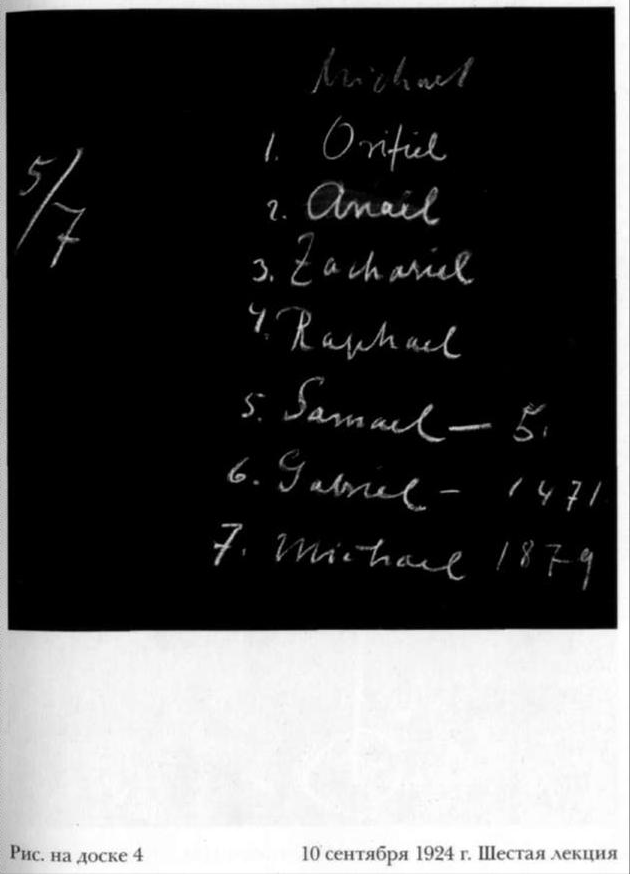 Michael
1. Orifiel
2. Anael
3. Zachariel
4. Raphael
5. Samael — 5.
6. Gabriel — 1471
7. Michael 1879
5/7
Рис. на доске 4
10 сентября 1924 г. Шестая лекция